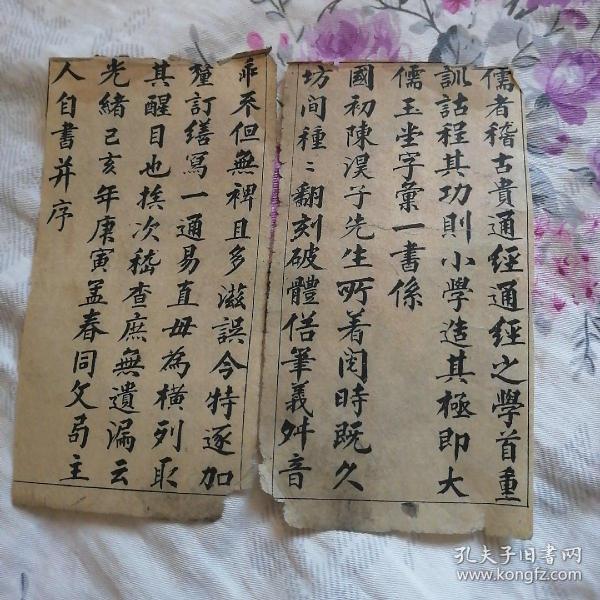 儒者稽古貴通經通經之學首重
訓詁程其功則小學造其極即大
儒玉坐字彙一書係
國初陳淏子先生所著閱時既久
坊间種〻翻刻破體俗筆義舛音
乖不但無裨且多滋誤今特逐加
釐訂缮寫一通易直毋為橫列取
其醒目也挨次嵇查庶無遺漏云
光緒己亥年庚寅孟春同文局主
人自書并序
孔夫子旧书网
www.kongfz.com